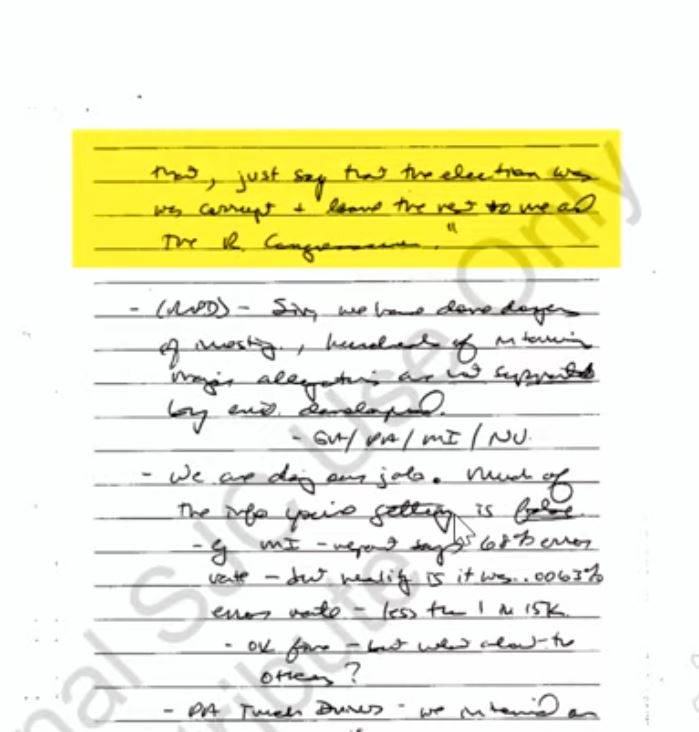 that, just say that the election was
was corrupt + leave the rest to me and
the R. Congressmen."
- (RPD) - Sir, we have done dozens
of investig., hundreds of interviews
major allegations are not supported
by evid. developed.
- GA/PA/MI/NV.
- We are doing our job. Much of
the info you're getting is false.
- eg MI - report says 68% error
rate - but reality is it was .0063%
error rate - less than 1 in 15K.
- OK fine - but what about the
others?
- PA Truck Driver - we interviewed
nal SJC Use Only
tribute